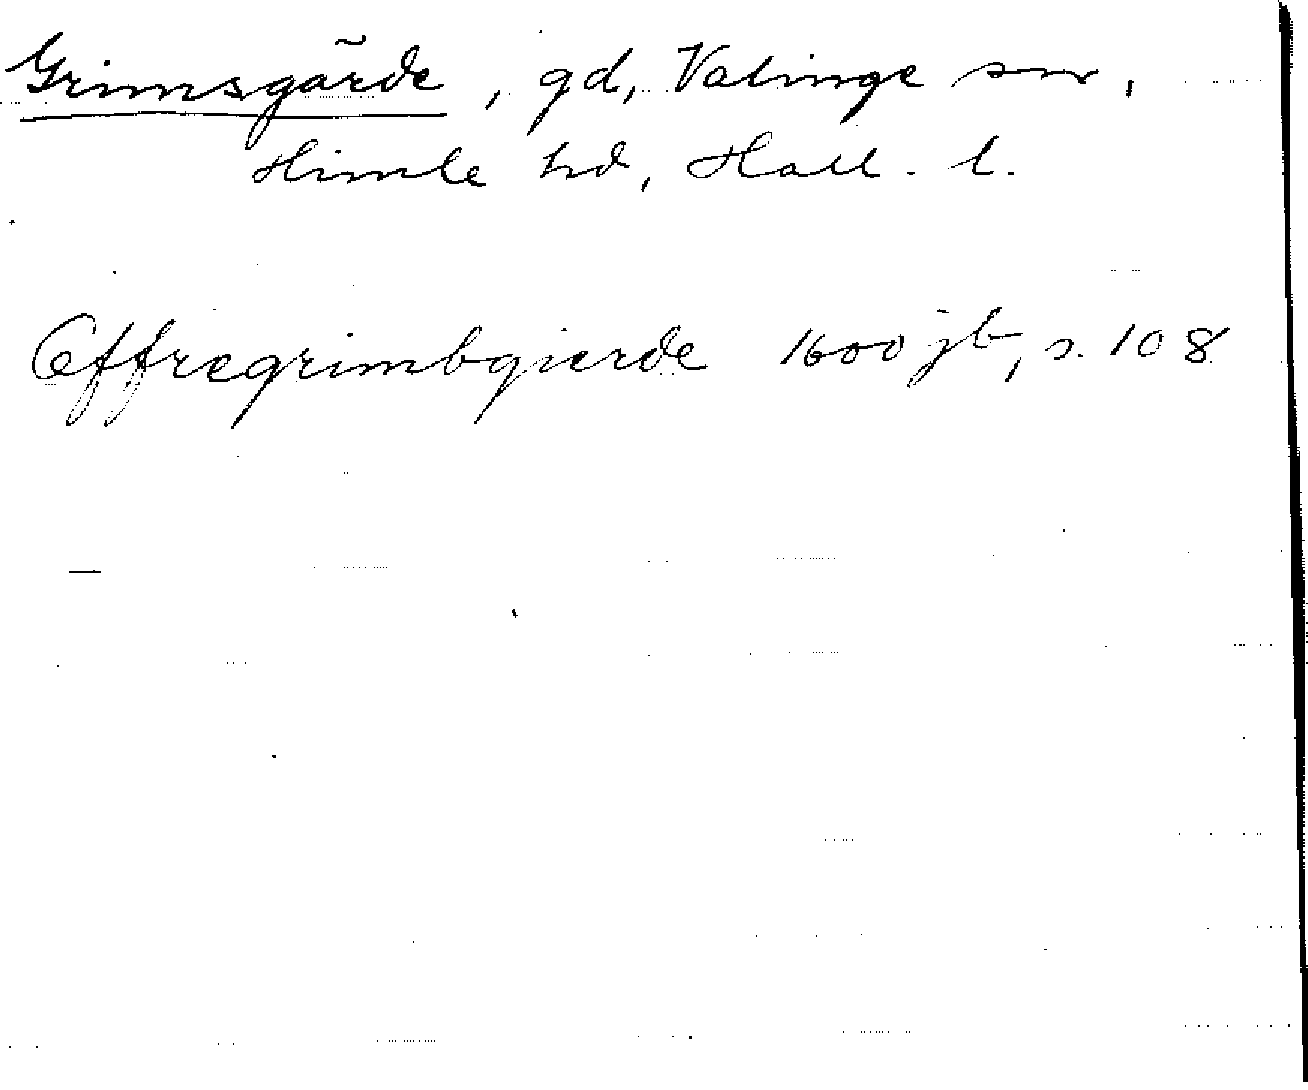 Grimsgärde, gd, Valinge sn,
Himle hd, Hall. l.
Offregrimbgierde 1600 jb, s. 108